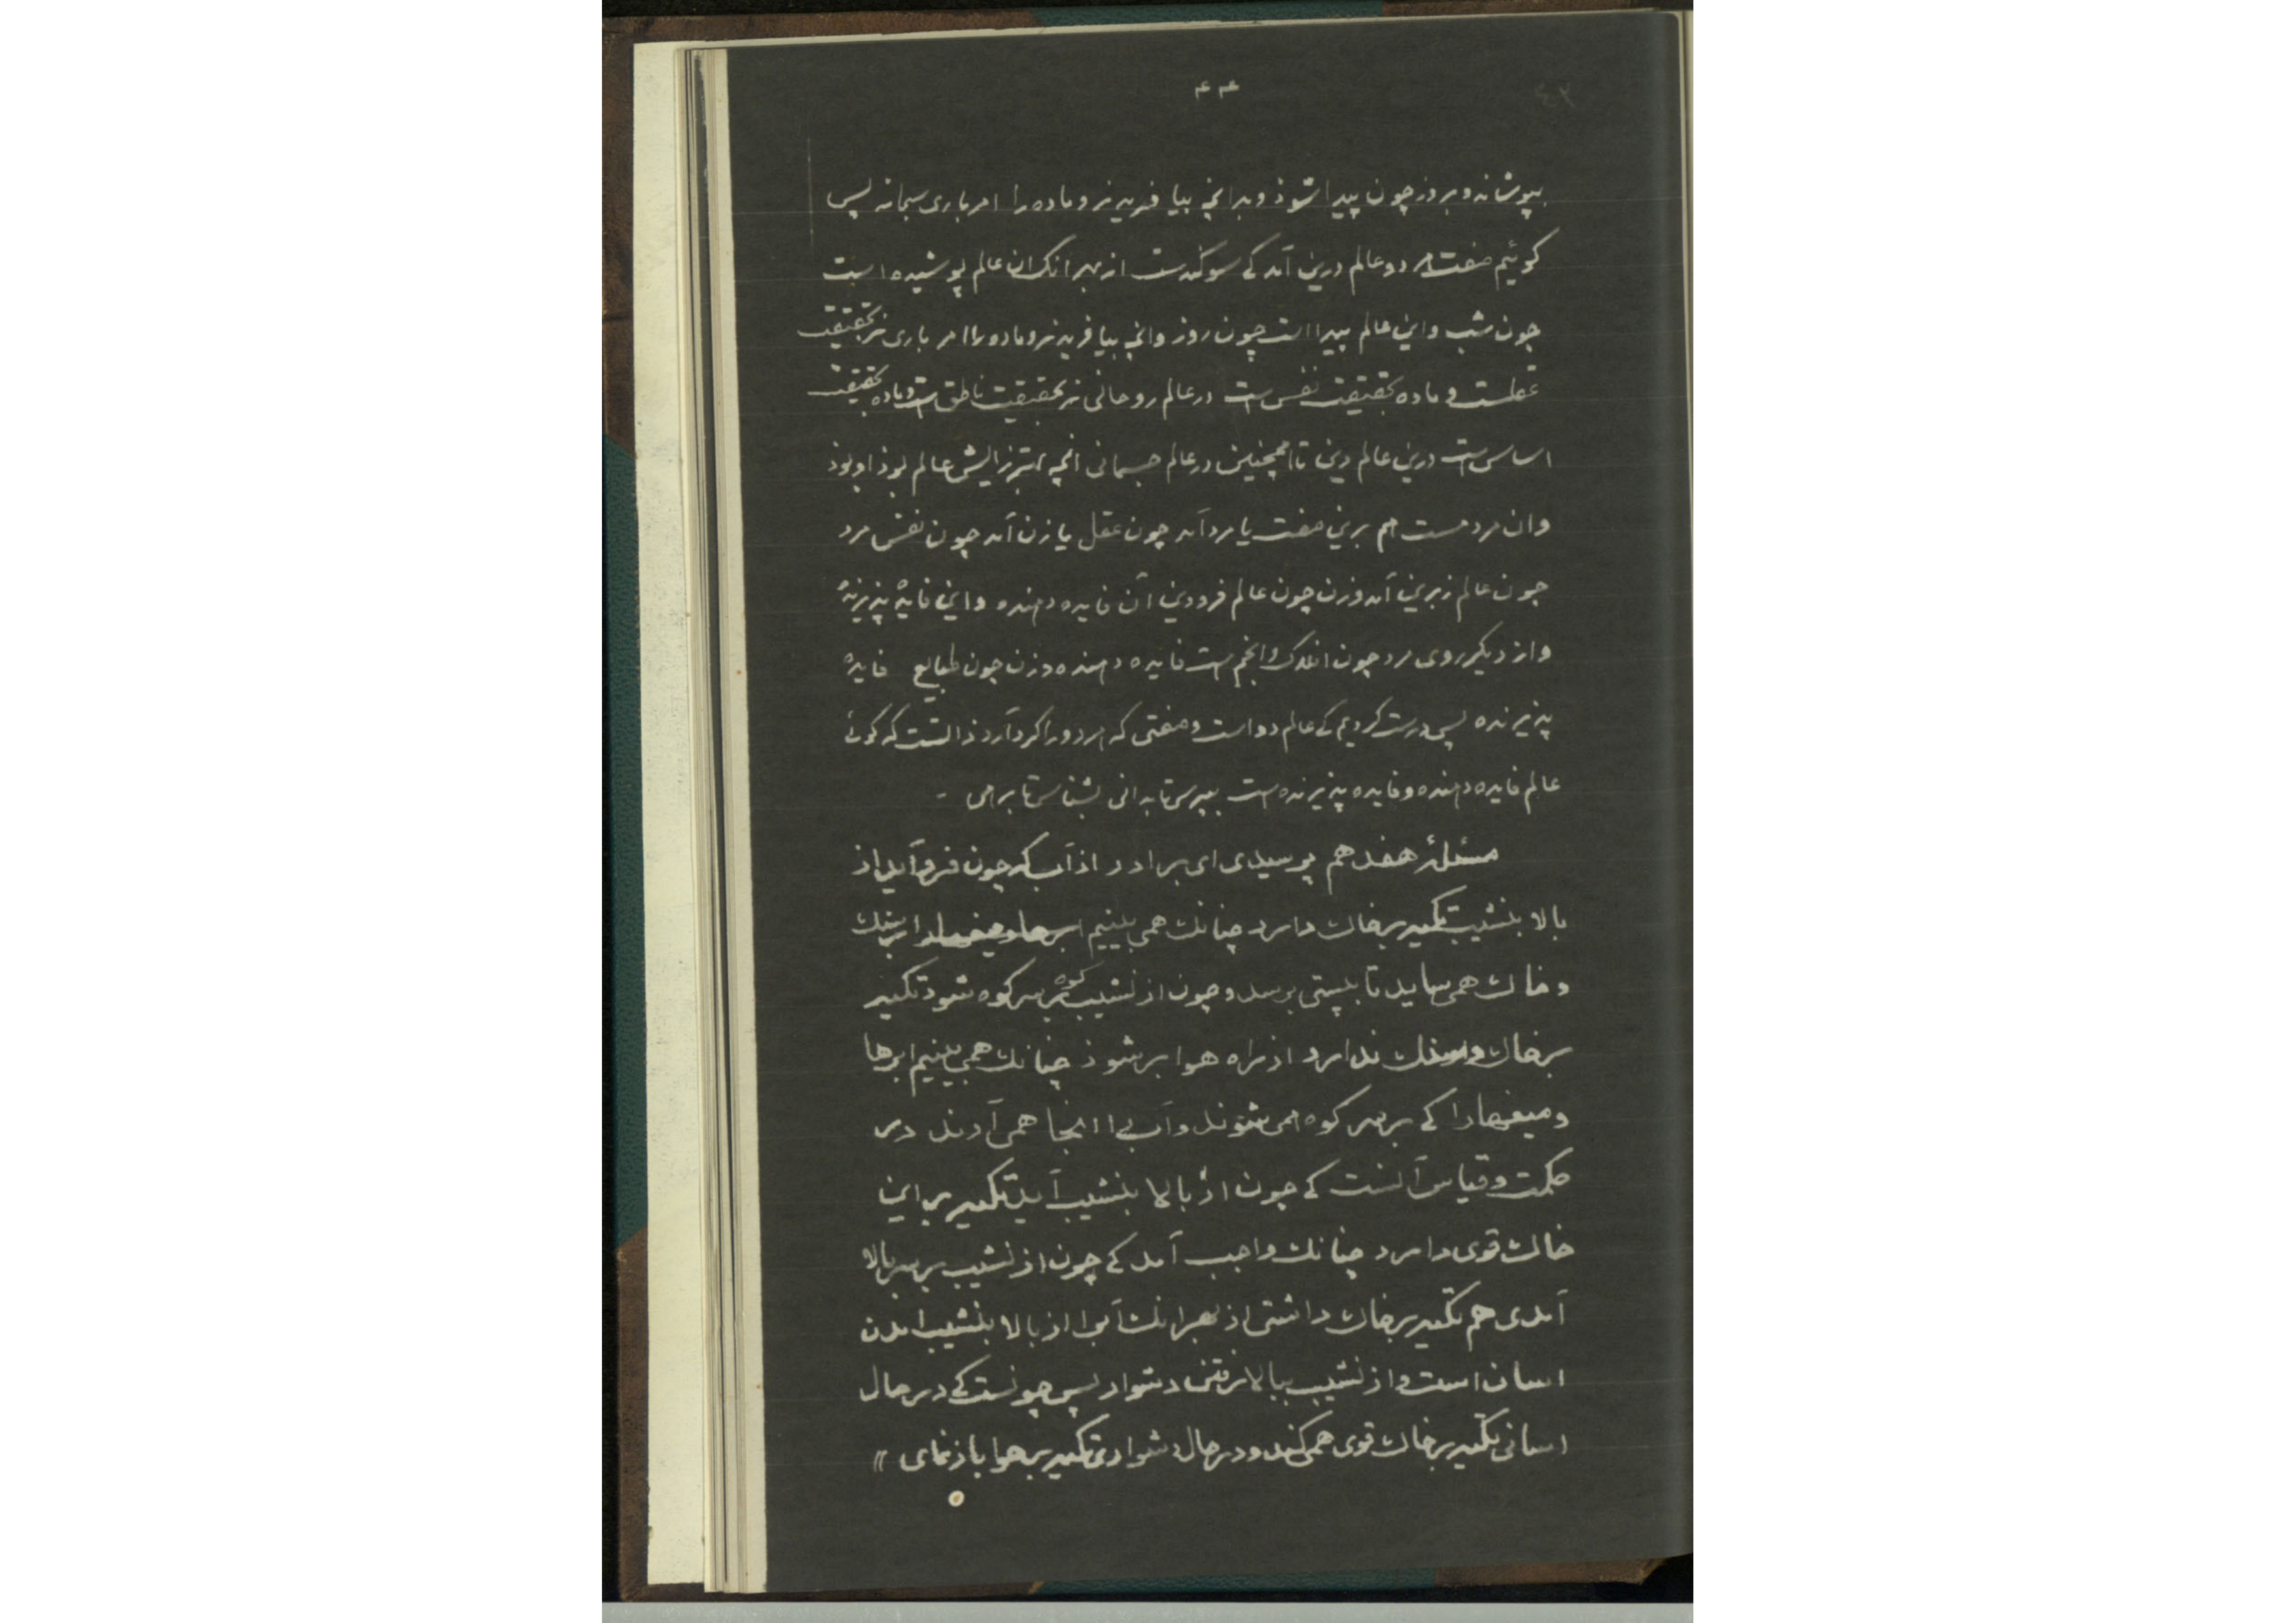 ۴۴
بپوشاند و بروز چون پیدا شود و بدانچ بیافرید نر و ماده را امر باری سبحانه پس
کوئیم صفت هر دو عالم درین آمد کی سوکندست از بهر انک ان عالم پوشیده است
چون شب و این عالم پیدا است چون روز وانچ بیافرید نر و ماده را امر باری نر بحقیقت
عقلست و ماده بحقیقت نفس است در عالم روحانی نر بحقیقت ناطق است و ماده بحقیقت
اساس است درین عالم دین تا همچنین در عالم جسمانی انچه بهتر زایش عالم بوذ او بوذ
وان مردمست هم برین صفت یا مرد آمد چون عقل یا زن آمد چون نفس مرد
چون عالم زبرین آمد و زن چون عالم فرودین آن فایده دهنده و این فایده پذیرنده
و از دیکر روی مرد چون افلاک و انجم است فایده دهنده و زن چون طبایع فایده
پذیرنده پس درست کردیم کی عالم دو است و صفتی که هر دو را کرد آرد ذا نست که کوئی
عالم فایده دهنده و فایده پذیرنده است بپرس تا بدانی بشناس تا برهی -
مسئلهٔ هفدهم پرسیدی ای برادر از آب که چون فروآید از
بالا بنشیب تکیه بر خاک دارد چنانک همی بینیم ابر سنک
و خاک همی ساید تا بپستی برسد و چون از نشیب کوه بر سر کوه شود تکیه
بر خاک و سنک ندارد از راه هوا بر شوذ چنانک همی بینیم ابرها
و میغها را کی بر سر کوه همی شوند و آب از انجا همی آرند در
حکمت و قیاس آنست کی چون از بالا بنشیب آید تکیه بر این
خاک قوی دارد چنانک واجب آمد کی چون از نشیب بر سر بالا
آمدی هم تکیه بر خاک داشتی از بهر انک آبرا از بالا بنشیب امدن
اسان است و از نشیب ببالا رفتن دشوار پس چونست کی در حال
اسانی تکیه بر خاک قوی همی کند و در حال دشواری تکیه بر هوا باز نمای